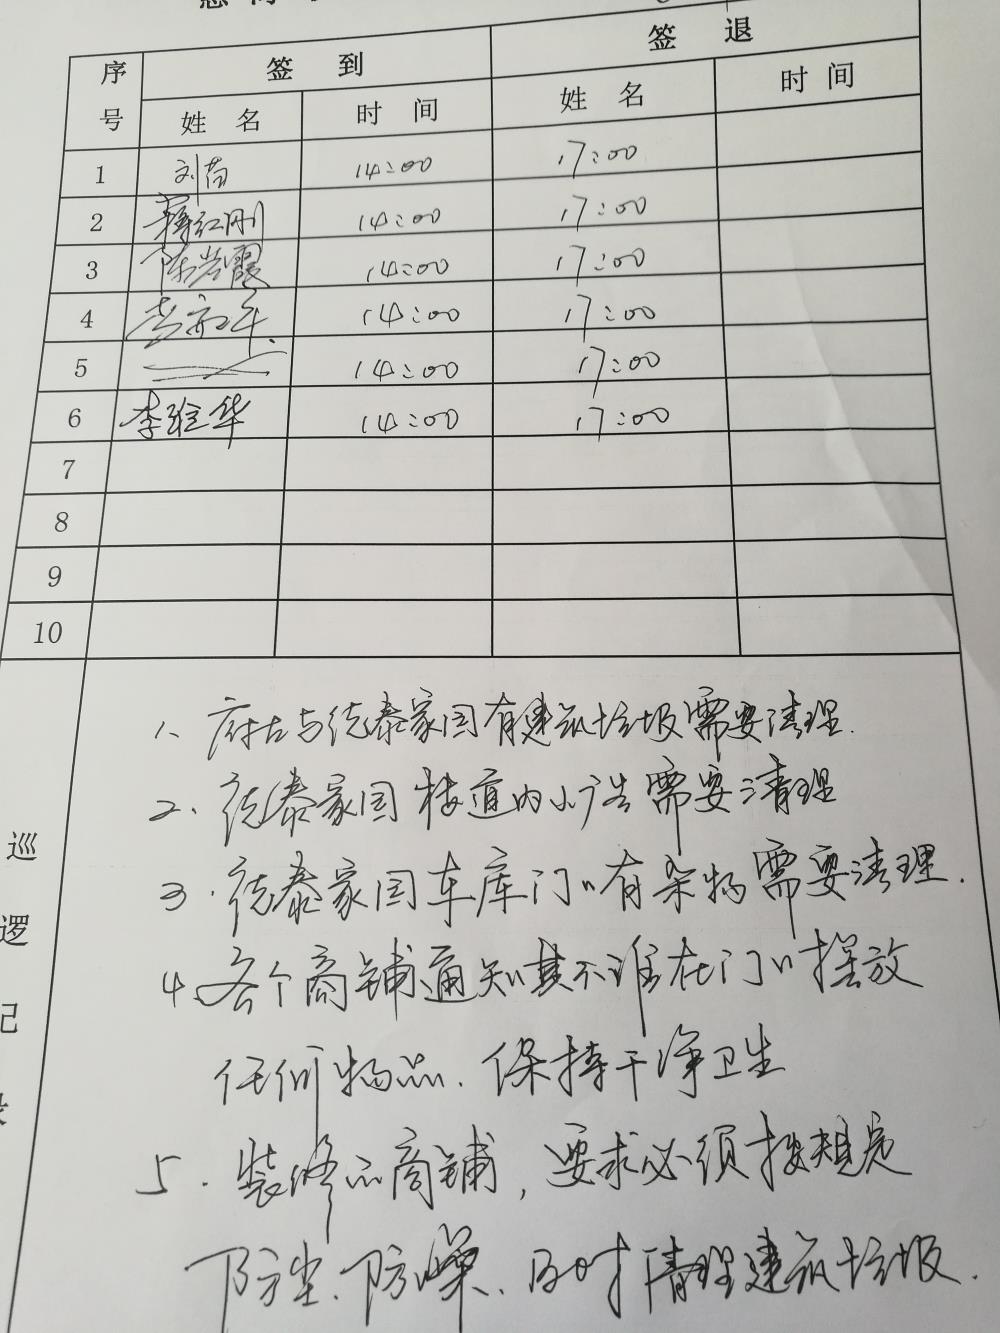 签 到 签 退
序号 姓 名 时 间 姓 名 时 间
1 刘苗 14:00 17:00
2 蒋红刚 14:00 17:00
3 陈岩霞 14:00 17:00
4 14:00 17:00
5 14:00 17:00
6 李维华 14:00 17:00
7
8
9
10
巡逻记录
1、府占与统泰家园有建筑垃圾需要清理.
2、统泰家园巷道内小广告需要清理
3.统泰家园车库门口有杂物需要清理.
4、各个商铺通知其不准在门口摆放
任何物品.保持干净卫生
5.装修商铺,要求必须按规定
防尘.防噪.及时清理建筑垃圾.